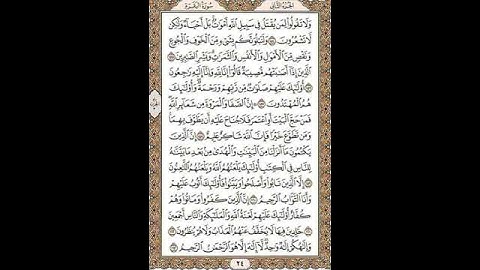 الجزء الثاني
سورة البقرة
وَلَا تَقُولُوا۟ لِمَن يُقْتَلُ فِى سَبِيلِ ٱللَّهِ أَمْوَٰتٌۢ بَلْ أَحْيَآءٌ وَلَٰكِن
لَّا تَشْعُرُونَ ١٥٤ وَلَنَبْلُوَنَّكُم بِشَىْءٍ مِّنَ ٱلْخَوْفِ وَٱلْجُوعِ
وَنَقْصٍ مِّنَ ٱلْأَمْوَٰلِ وَٱلْأَنفُسِ وَٱلثَّمَرَٰتِ وَبَشِّرِ ٱلصَّٰبِرِينَ ١٥٥
ٱلَّذِينَ إِذَآ أَصَٰبَتْهُم مُّصِيبَةٌ قَالُوٓا۟ إِنَّا لِلَّهِ وَإِنَّآ إِلَيْهِ رَٰجِعُونَ
١٥٦ أُو۟لَٰٓئِكَ عَلَيْهِمْ صَلَوَٰتٌ مِّن رَّبِّهِمْ وَرَحْمَةٌ وَأُو۟لَٰٓئِكَ
هُمُ ٱلْمُهْتَدُونَ ١٥٧ إِنَّ ٱلصَّفَا وَٱلْمَرْوَةَ مِن شَعَآئِرِ ٱللَّهِ
فَمَنْ حَجَّ ٱلْبَيْتَ أَوِ ٱعْتَمَرَ فَلَا جُنَاحَ عَلَيْهِ أَن يَطَّوَّفَ بِهِمَا
وَمَن تَطَوَّعَ خَيْرًا فَإِنَّ ٱللَّهَ شَاكِرٌ عَلِيمٌ ١٥٨ إِنَّ ٱلَّذِينَ
يَكْتُمُونَ مَآ أَنزَلْنَا مِنَ ٱلْبَيِّنَٰتِ وَٱلْهُدَىٰ مِنۢ بَعْدِ مَا بَيَّنَّٰهُ
لِلنَّاسِ فِى ٱلْكِتَٰبِ أُو۟لَٰٓئِكَ يَلْعَنُهُمُ ٱللَّهُ وَيَلْعَنُهُمُ ٱللَّٰعِنُونَ
١٥٩ إِلَّا ٱلَّذِينَ تَابُوا۟ وَأَصْلَحُوا۟ وَبَيَّنُوا۟ فَأُو۟لَٰٓئِكَ أَتُوبُ عَلَيْهِمْ
وَأَنَا ٱلتَّوَّابُ ٱلرَّحِيمُ ١٦٠ إِنَّ ٱلَّذِينَ كَفَرُوا۟ وَمَاتُوا۟ وَهُمْ
كُفَّارٌ أُو۟لَٰٓئِكَ عَلَيْهِمْ لَعْنَةُ ٱللَّهِ وَٱلْمَلَٰٓئِكَةِ وَٱلنَّاسِ أَجْمَعِينَ
١٦١ خَٰلِدِينَ فِيهَا لَا يُخَفَّفُ عَنْهُمُ ٱلْعَذَابُ وَلَا هُمْ يُنظَرُونَ ١٦٢
وَإِلَٰهُكُمْ إِلَٰهٌ وَٰحِدٌ لَّآ إِلَٰهَ إِلَّا هُوَ ٱلرَّحْمَٰنُ ٱلرَّحِيمُ ١٦٣
٢٤